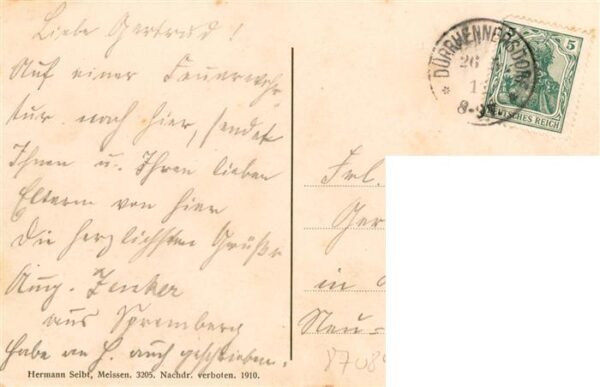 Liebe Gertrud!
Auf einer Feuerwehr
tur nach hier, sendet
Ihnen u. Ihren lieben
Eltern von hier
die herzlichsten Grüße
Aug. Zenker
aus Spremberg
habe an H. auch geschrieben.
Hermann Seibt, Meissen. 3205. Nachdr. verboten. 1910.
* DÜRRHENNERSDORF *
26
8-9
5
DEUTSCHES REICH
Frl.
Ger
in
Neu-